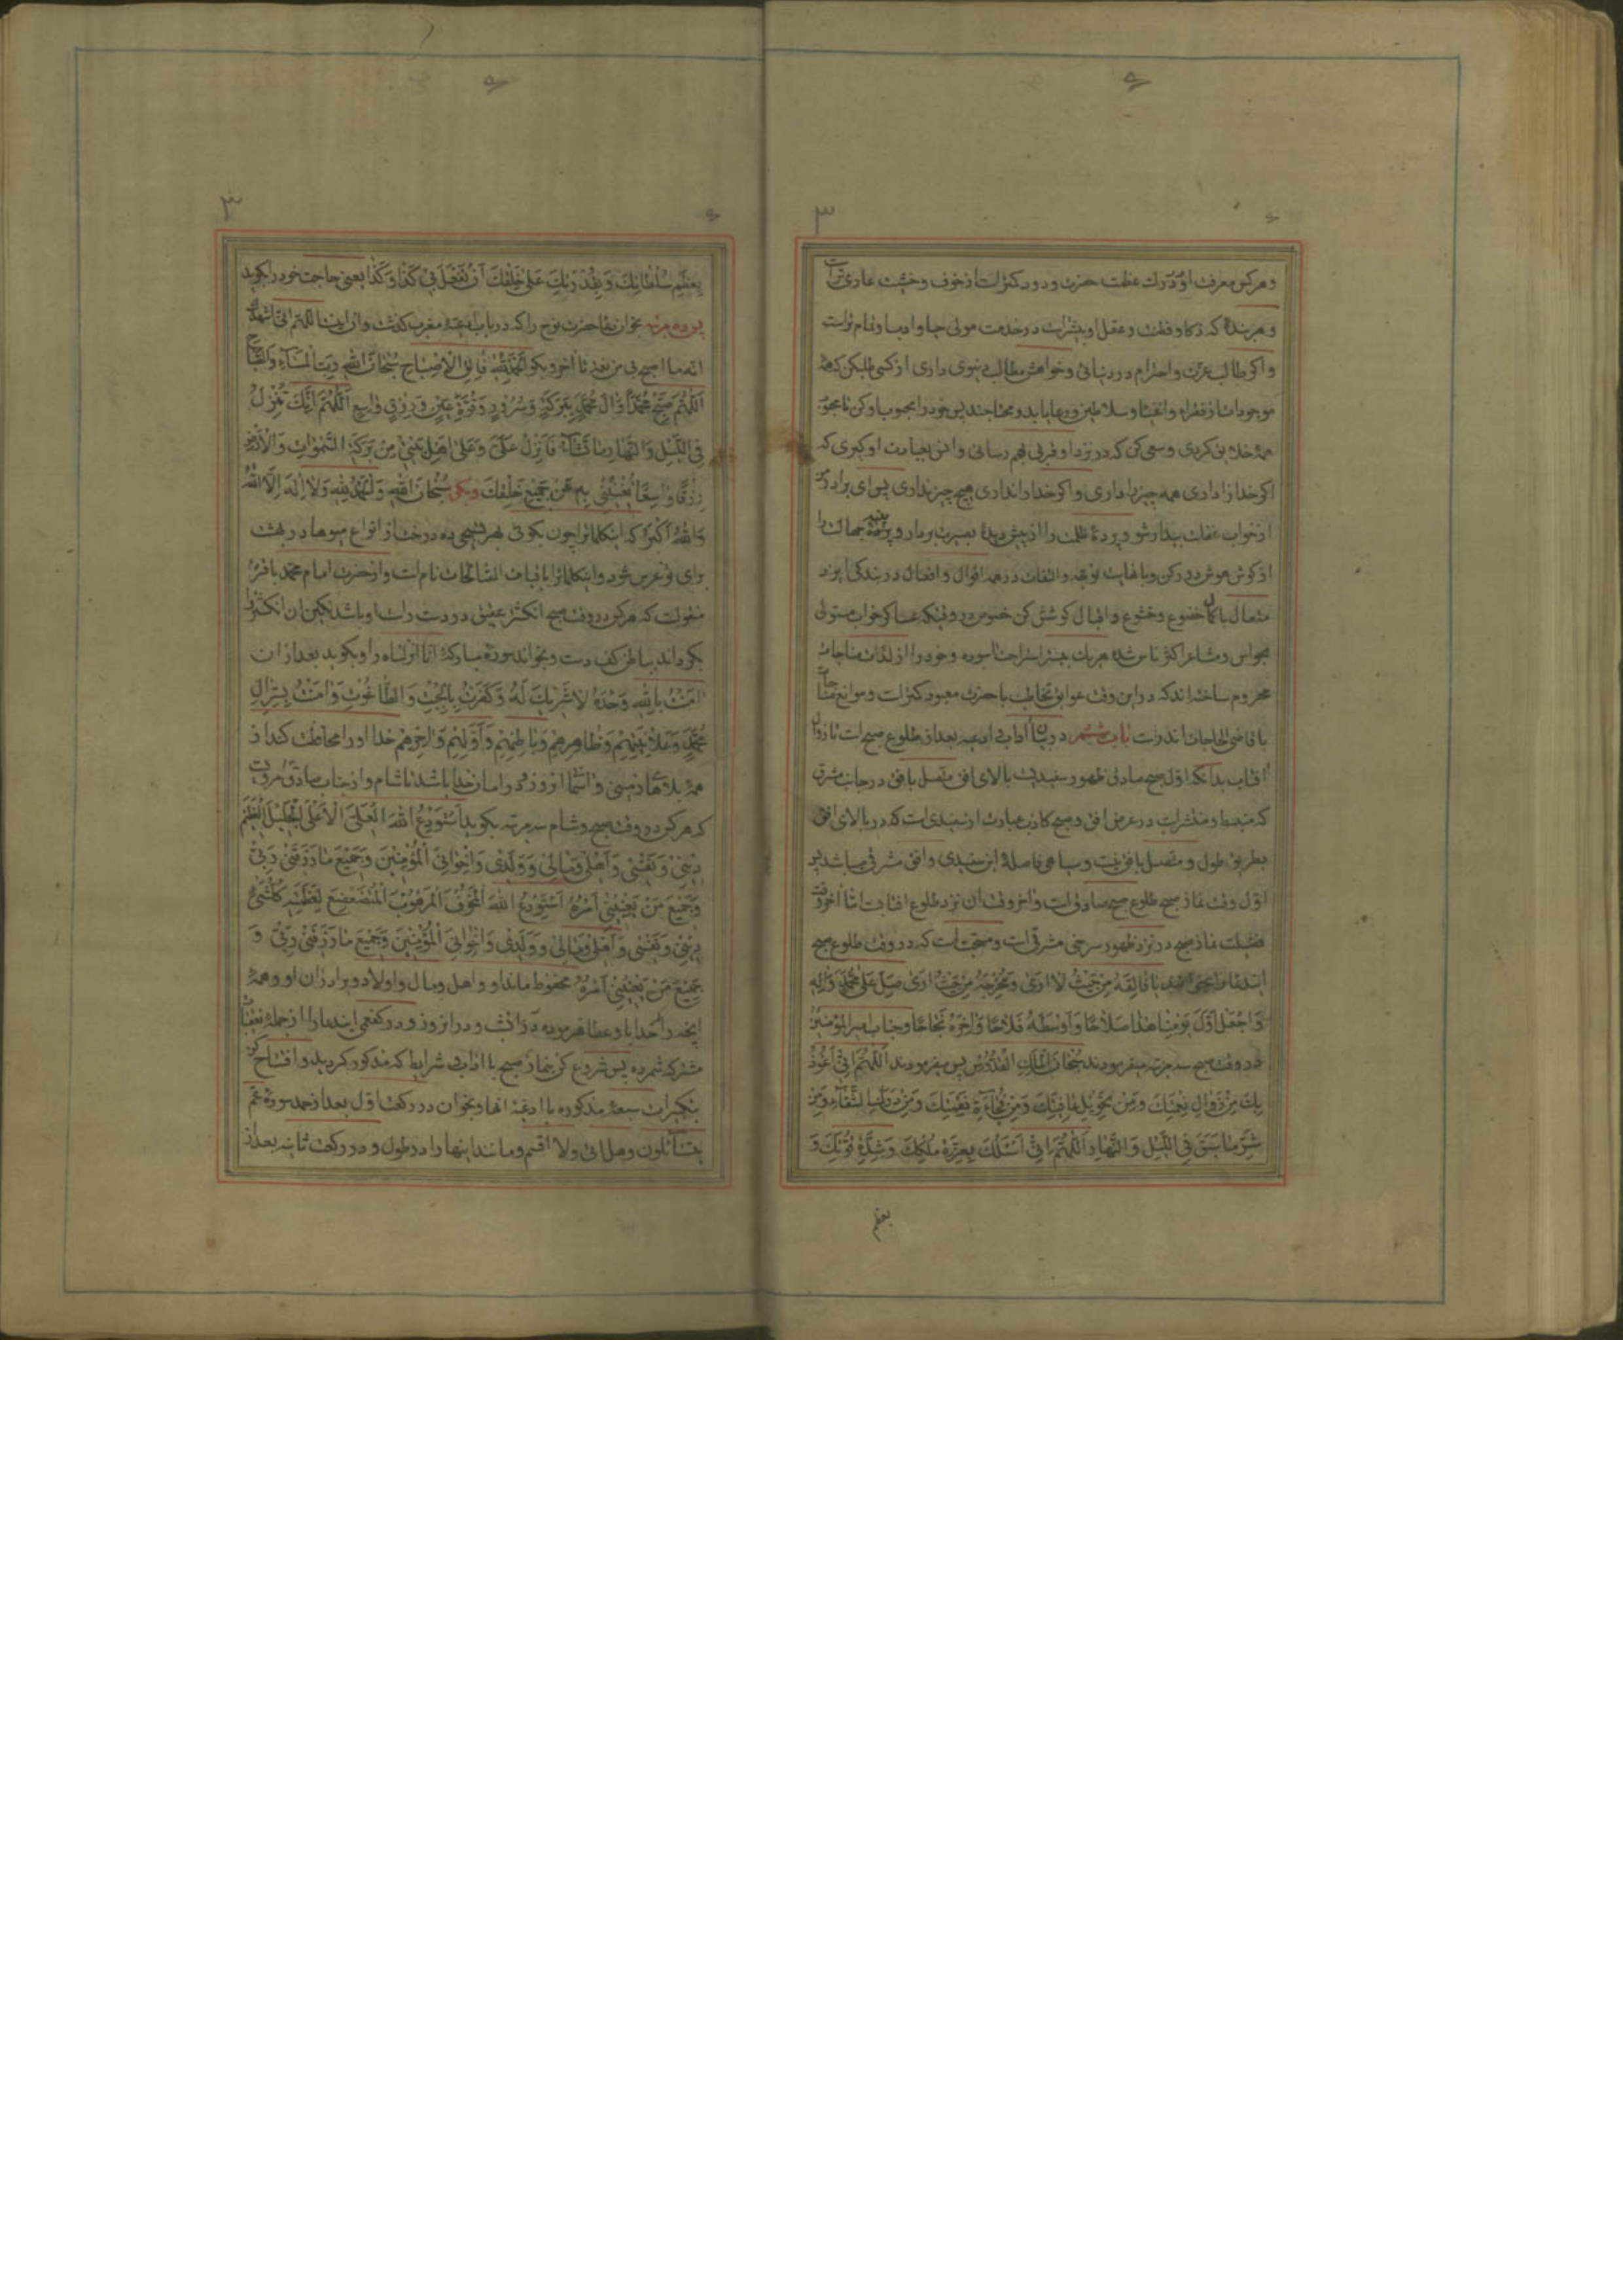 و هر کس معرفت او در درك عظمت حضرت ودود کمتر است از خوف و خشیت عاری تر است
و هر بنده که ذکا و فطنت و عقل او بیشتر است در خدمت مولی حیا و ادب او تمام تر است
و اکر طالب عزت و احترام در دنیائی و خواهش مطالب دنیوی داری از کسی طلب کن که همهٔ
موجودات از فقراء و اغنیا و سلاطین و رعایا بدو محتاجند پس خود را محبوب او کن تا محبوب
همهٔ خلایق کردی و سعی کن که در نزد او قربی بهم رسانی و انس بعبادت او کیری که
اکر خدا را داری همه چیز را داری و اکر خدا را نداری هیچ چیز نداری پس ای برادر
از خواب غفلت بیدار شو و پردهٔ ظلمت را از پیش دیدهٔ بصیرت بردار و پنبهٔ جهالت را
از کوش هوش بدر کن و با نهایت توجه و التفات در همه اقوال و افعال در بندکی ایزد
متعال با کمال خضوع و خشوع و اقبال کوشش کن خصوص در وقتیکه عساکر خواب مستولی
بحواس و مشاعر اکثر ناس شده هریك ببستر استراحت آسوده و خود را از لذات مناجات
محروم ساخته اند که در این وقت عوایق تخاطب با حضرت معبود کمتر است و موانع مناجات
با قاضی الحاجات اندر است باب ششم در بیان آداب و ادعیه بعد از طلوع صبح است تا زوال
آفتاب بدانکه اول صبح صادق ظهور سفیدیست بالای افق متصل بافق در جانب مشرق
که منبسط و منتشر است در عرض افق و صبح کاذب عبارت از سفیدی است که در بالای افق
بطریق طول و متصل بافق نیست و سیاهی فاصلهٔ این سفیدی و افق مشرقی میباشد پس
اول وقت نماز صبح طلوع صبح صادق است و آخر وقت آن نزد طلوع آفتابست اما آخر وقت
فضیلت نماز صبح در نزد ظهور سرخی مشرقی است و مستحبست که در وقت طلوع صبح
ایندعا را یا فالقه من حیث لا اری و مخرجه من حیث اری صل علی محمد و آله
و اجعل اول یومنا هذا صلاحا و اوسطه فلاحا و آخره نجاحا و جناب امیر المؤمنین
در وقت صبح سه مرتبه میفرمودند سبحان الملك القدوس پس میفرمودند اللهم انی اعوذ
بك من زوال نعمتك و من تحویل عافیتك و من فجاءة نقمتك و من درك الشقاء و من
شر ما سبق فی اللیل و النهار اللهم انی اسئلك بعزة ملکك و شدة قوتك و
بعظم
بعظیم سلطانك و بقدرتك علی خلقك ان تفعل بی کذا و کذا یعنی حاجت خود را بکوید
پس ده مرتبه بخوان دعا حضرت نوح را که در باب ادعیهٔ مغرب کذشت و آن اینست اللهم انی اشهدك
انه ما اصبح بی من نعمة تا آخر و بکو الحمد لله فالق الاصباح سبحان الله رب المساء و الصباح
اللهم صبح محمدا و آل محمد ببرکة و سرور و قرة عین و رزق واسع اللهم انك تنزل
فی اللیل و النهار ما تشاء فانزل علی و علی اهل بیتی من برکة السموات و الارض
رزقا واسعا تغنینی به عن جمیع خلقك و بکو سبحان الله و الحمد لله و لا اله الا الله
و الله اکبر که اینکلمات را چون بکوئی بهر تسبیحی ده درخت از انواع میوها در بهشت
برای تو غرس شود و اینکلمات را باقیات الصالحات نام است و از حضرت امام محمد باقر
منقولست که هر کس در وقت صبح انکشتر عقیق در دست راست او باشد نکین آن انکشتر را
بکرداند بباطن کف دست و بخواند سورهٔ مبارکهٔ انا انزلناه را و بکوید بعد از آن
آمنت بالله وحده لا شریك له و کفرت بالجبت و الطاغوت و آمنت بسر آل
محمد و علانیتهم و ظاهرهم و باطنهم و اولهم و آخرهم خدا او را محافظت کند از
همهٔ بلاها زمینی و آسمانی آنروز و در امان خدا باشد تا شام و از جناب صادق مرویست
که هر کس در وقت صبح و شام سه مرتبه بکوید استودع الله العلی الاعلی الجلیل العظیم
دینی و نفسی و اهلی و مالی و ولدی و اخوانی المؤمنین و جمیع ما رزقنی ربی
و جمیع من یعنینی امره استودع الله المخوف المرهوب المتضعضع لعظمته کلشیء
دینی و نفسی و اهلی و مالی و ولدی و اخوانی المؤمنین و جمیع ما رزقنی ربی و
جمیع من یعنینی امره محفوظ ماند او و اهل و مال و اولاد و برادران او و همهٔ
آنچه را خدا باو عطا فرموده در آنشب و در آنروز و در کفعمی ایندعا را از جملهٔ تعقیبات
مشترکه شمرده پس شروع کن بنماز صبح با آداب و شرایط که مذکور کردید و افتتاح کن
بتکبیرات سبعهٔ مذکوره با ادعیهٔ آنها و بخوان در رکعت اول بعد از حمد سورهٔ عم
یتسائلون و هل اتی و لا اقسم و مانند اینها را در طول و در رکعت ثانیه بعد از